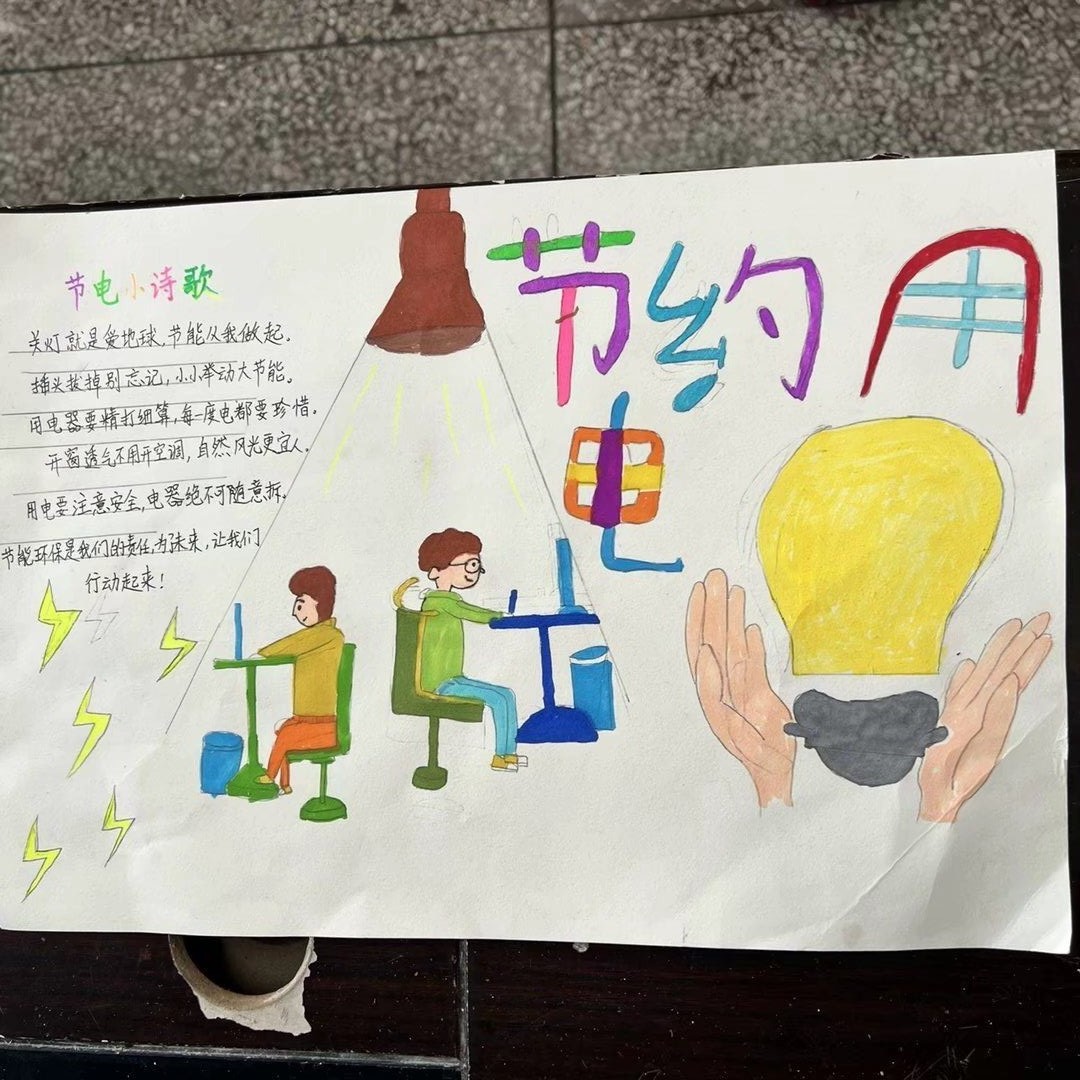 节电小诗歌
关灯就是爱地球，节能从我做起。
插头拔掉别忘记，小小举动大节能。
用电器要精打细算，每一度电都要珍惜。
开窗透气不用开空调，自然风光更宜人。
用电要注意安全，电器绝不可随意拆。
节能环保是我们的责任，为了未来，让我们
行动起来！
节约用
电